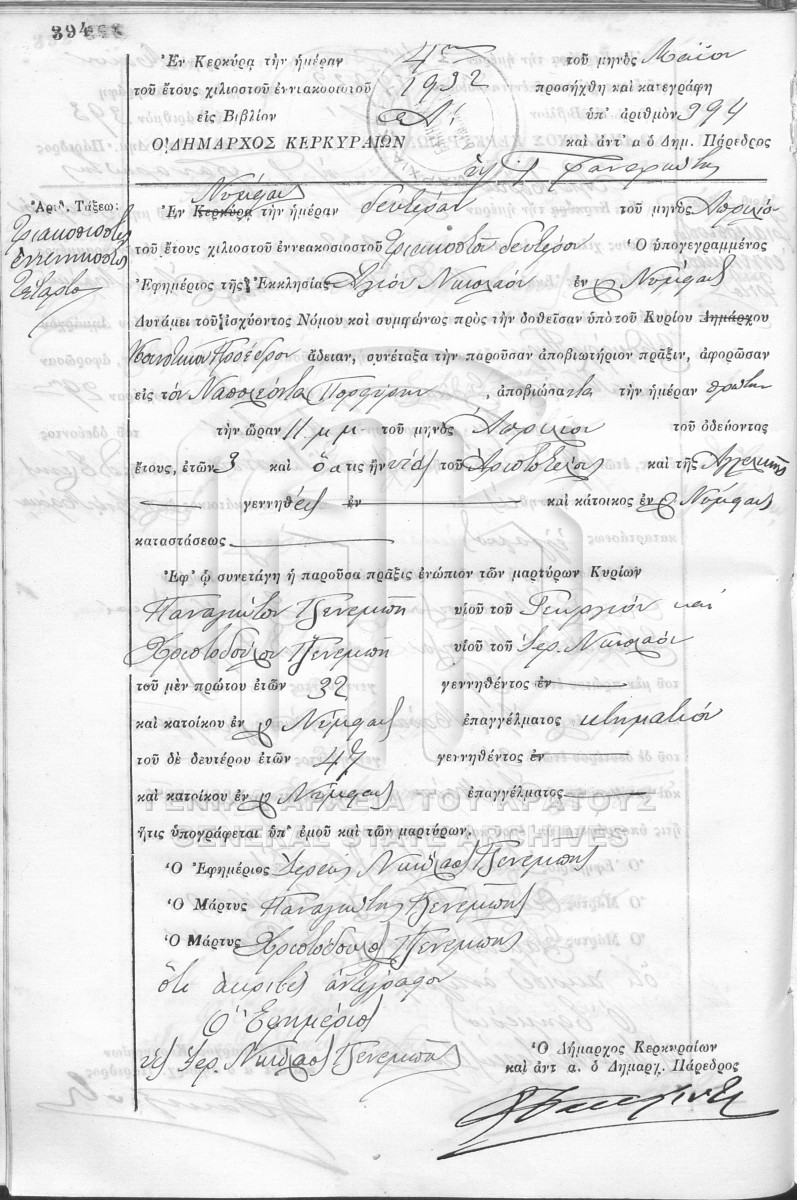 394
Ἐν Κερκύρᾳ τὴν ἡμέραν 4ην τοῦ μηνὸς Μαΐου
τοῦ ἔτους χιλιοστοῦ ἐννιακοσιοῦ 1932 προσήχθη καὶ κατεγράφη
εἰς Βιβλίον Α! ὑπ' ἀριθμὸν 394
Ο! ΔΗΜΑΡΧΟΣ ΚΕΡΚΥΡΑΙΩΝ καὶ ἀντ' α ὁ Δημ. Πάρεδρος
Νυμφαὶς
Ἀριθ. Τάξεως:
Τριακοσιοστὸς
ἐννενηκοστὸς
τέταρτος
Ἐν Κερκύρᾳ τὴν ἡμέραν δευτέραν τοῦ μηνὸς Ἀπριλίου
τοῦ ἔτους χιλιοστοῦ ἐννεακοσιοστοῦ τριακοστοῦ δευτέρου Ὁ ὑπογεγραμμένος
Ἐφημέριος τῆς Ἐκκλησίας Ἁγίου Νικολάου ἐν Νυμφαὶς
Δυνάμει τοῦ ἰσχύοντος Νόμου καὶ συμφώνως πρὸς τὴν δοθεῖσαν ὑπὸ τοῦ Κυρίου Δημάρχου
Κοινοτικοῦ Προέδρου ἄδειαν, συνέταξα τὴν παροῦσαν ἀποβιωτήριον πρᾶξιν, ἀφορῶσαν
εἰς τὸν Ναπολέοντα Πορφύρην, ἀποβιώσαντα τὴν ἡμέραν πρώτην
τὴν ὥραν 11 μ μ τοῦ μηνὸς Ἀπριλίου τοῦ ὁδεύοντος
ἔτους, ἐτῶν 3 καὶ ὅστις ἦν υἱὸς τοῦ Ἀριστοτέλους καὶ τῆς Ἀγγελικῆς
γεννηθεὶς ἐν καὶ κάτοικος ἐν Νυμφαὶς
καταστάσεως
Ἐφ' ᾧ συνετάγη ἡ παροῦσα πρᾶξις ἐνώπιον τῶν μαρτύρων Κυρίων
Παναγιώτου Τζενεμπῆ υἱοῦ τοῦ Γεωργίου καὶ
Χριστοδούλου Τζενεμπῆ υἱοῦ τοῦ Ἱερ. Νικολάου
τοῦ μὲν πρώτου ἐτῶν 32 γεννηθέντος ἐν
καὶ κατοίκου ἐν Νυμφαὶς ἐπαγγέλματος κτηματίου
τοῦ δὲ δευτέρου ἐτῶν 47 γεννηθέντος ἐν
καὶ κατοίκου ἐν Νυμφαὶς ἐπαγγέλματος
ΓΕΝΙΚΑ ΑΡΧΕΙΑ ΤΟΥ ΚΡΑΤΟΥΣ
ἥτις ὑπογράφεται ὑπ' ἐμοῦ καὶ τῶν μαρτύρων.
GENERAL STATE ARCHIVES
Ὁ Ἐφημέριος Ἱερεὺς Νικόλαος Τζενεμπῆς
Ὁ Μάρτυς Παναγιώτης Τζενεμπῆς
Ὁ Μάρτυς Χριστόδουλος Τζενεμπῆς
ὅτι ἀκριβὲς ἀντίγραφον
Ὁ Ἐφημέριος
Ἱερ. Νικόλαος Τζενεμπῆς
Ὁ Δήμαρχος Κερκυραίων
καὶ ἀντ α. ὁ Δημαρχ. Πάρεδρος